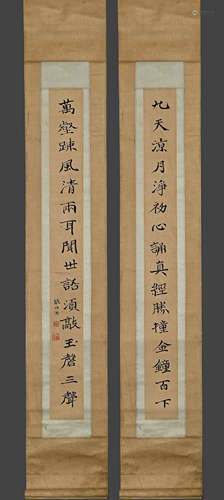 九天涼月淨初心誦真經勝撞金鐘百下
萬壑踈風清兩耳聞世語須敲玉磬三聲